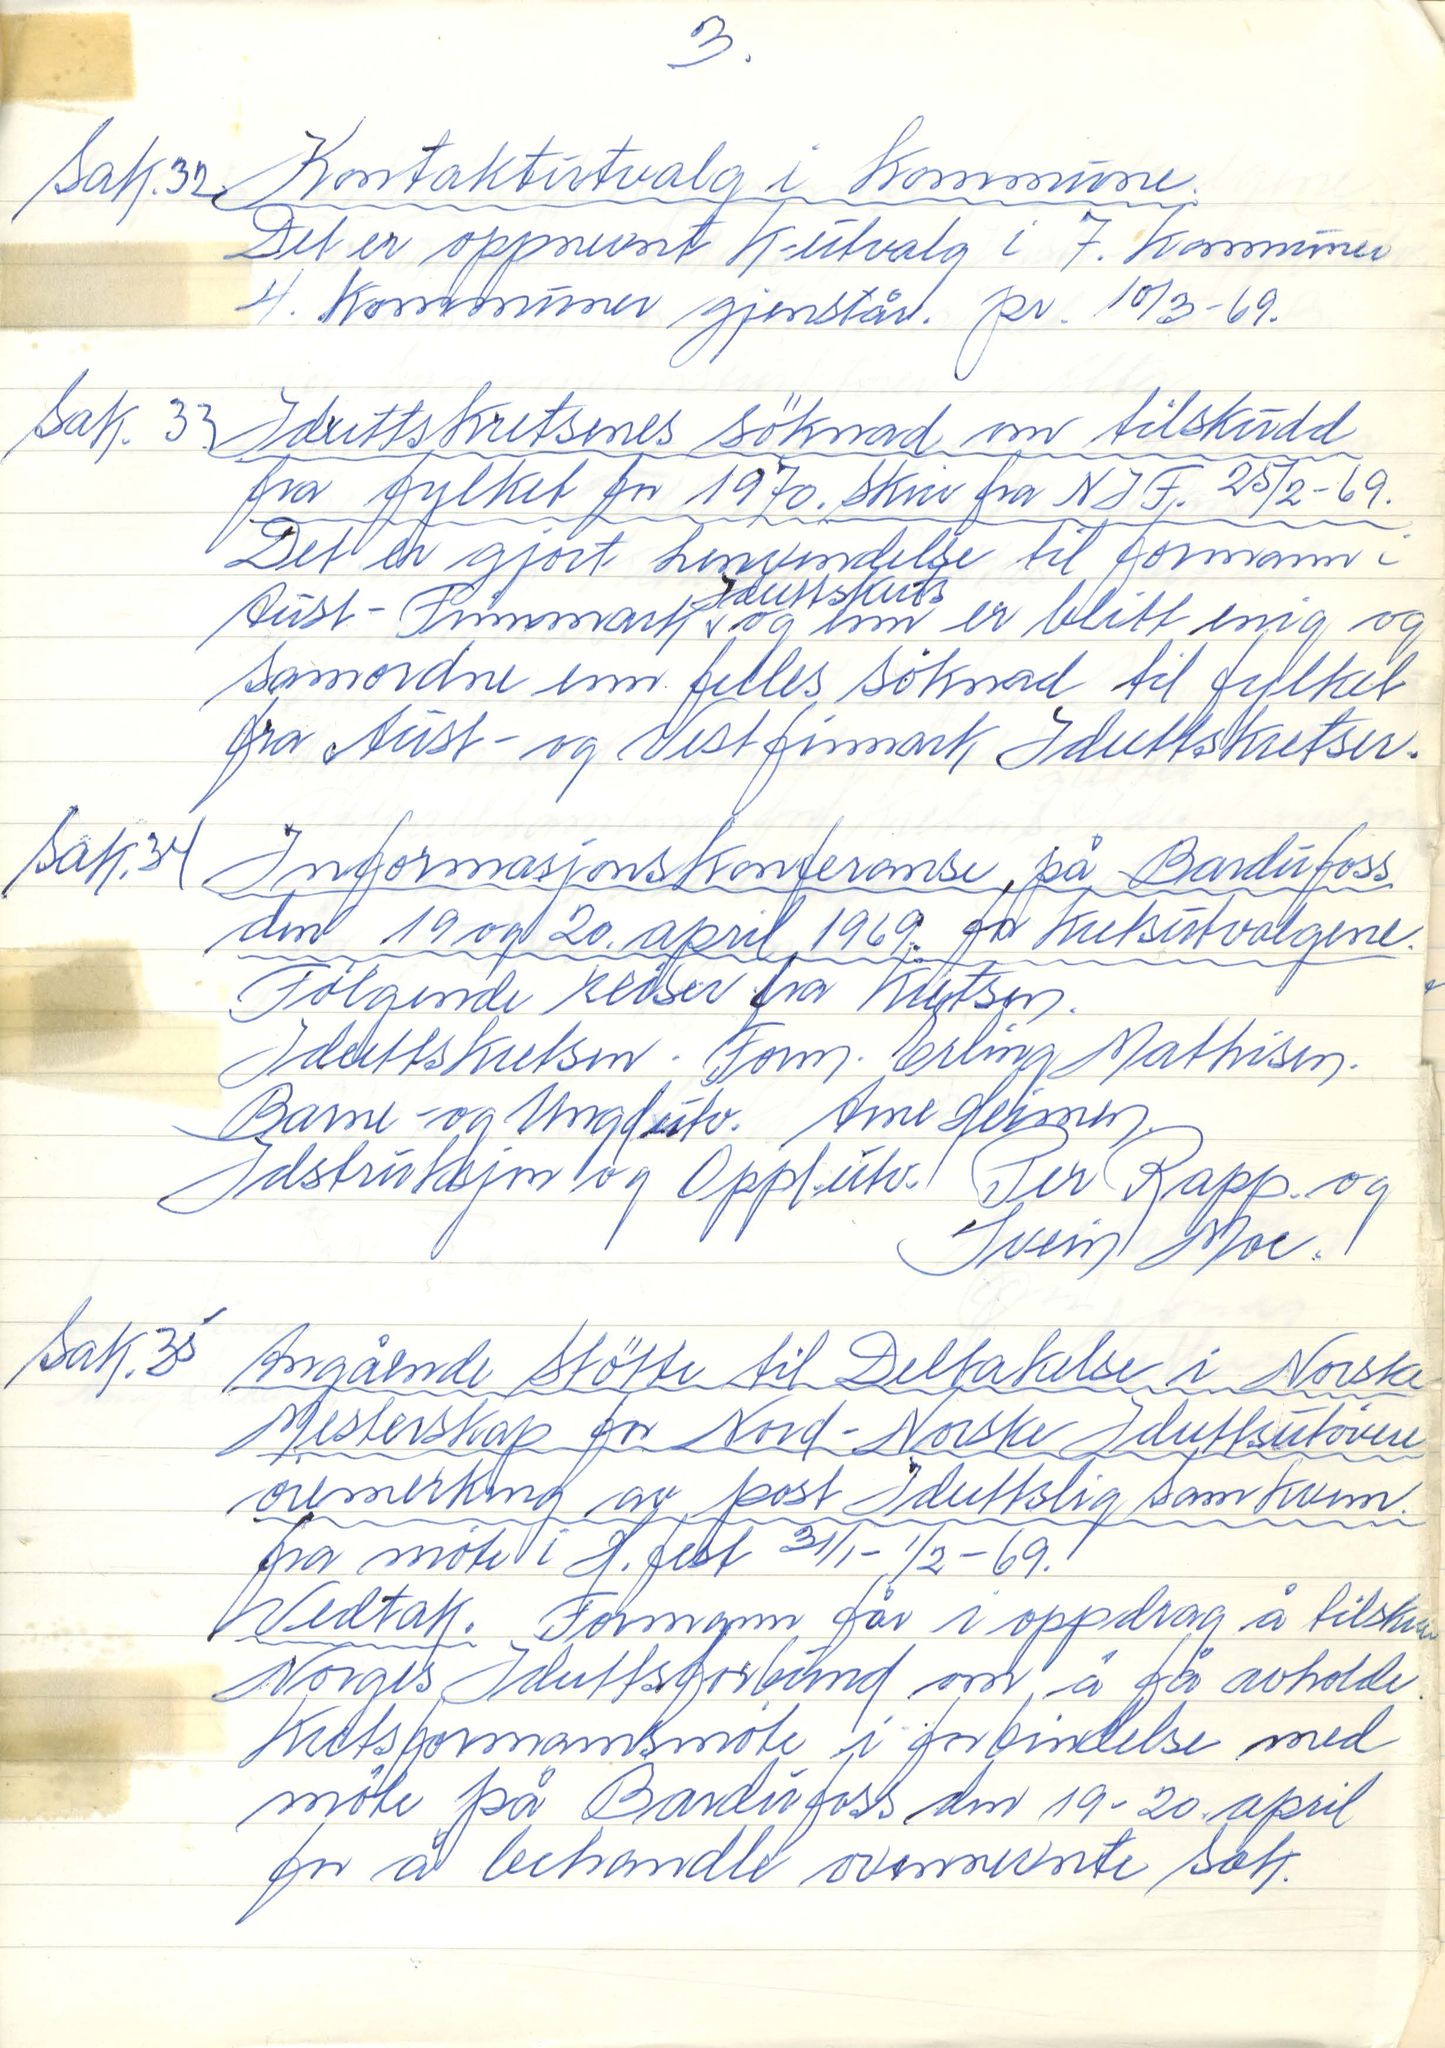 3.
Sak. 32 Kontaktutvalg i Kommune.
Det er oppnevnt K-utvalg i 7. Kommuner
4. Kommuner gjenstår. pr. 10/3-69.
Sak. 33 Idrettskretsenes söknad om tilskudd
fra fylket for 1970. Skriv fra N I F. 25/2-69.
Det er gjort henvendelse til formann i
Aust-Finnmark Idrettskrets og enn er blitt enig og
samordne enn felles söknad til fylket
fra Aust- og Vestfinmark Idrettskretser.
Sak. 34 Informasjonskonferanse på Bardufoss
den 19 og 20. april 1969. for Kretsutvalgene.
Fölgende reiser fra Kretsen.
Idrettskretsen. Form. Erling Mathisen.
Barne-og Ungd.utv. Arne Heimen.
Idstruksjon og Oppl.utv. Per Rapp. og
Svein Moe.
Sak. 35 Angående Stötte til Deltakelse i Norske
Mesterskap for Nord-Norske Idrettsutövere
öremerking av post Idrettslig Samkvem.
fra möte i H.fest 31/1-1/2-69.
Vedtak. Formann får i oppdrag å tilskrive
Norges Idrettsforbund om å få avholde
Kretsformannsmöte i forbindelse med
möte på Bardufoss den 19-20. april
for å behandle ovennevnte Sak.